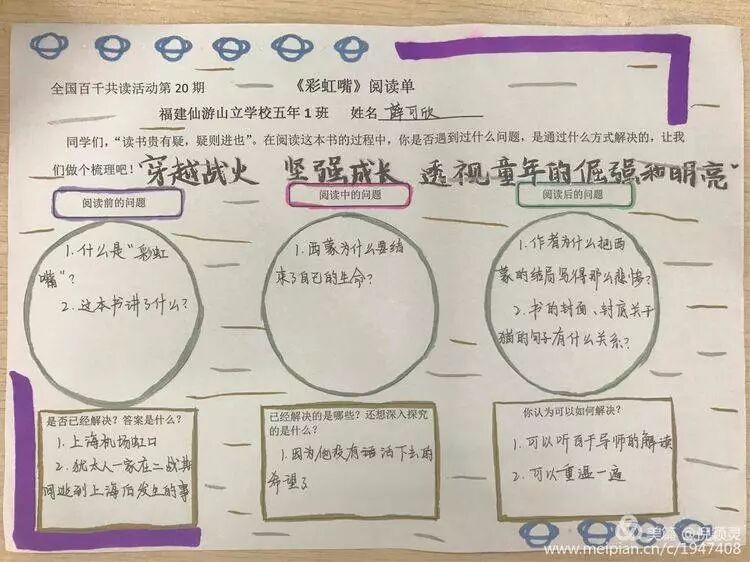 全国百千共读活动第 20 期
《彩虹嘴》阅读单
福建仙游山立学校五年 1 班 姓名 薛可欣
同学们，“读书贵有疑，疑则进也”。在阅读这本书的过程中，你是否遇到过什么问题，是通过什么方式解决的，让我
们做个梳理吧！
“穿越战火 坚强成长 透视童年的倔强和明亮”
阅读前的问题
1.什么是“彩虹
嘴”？
2.这本书讲了什么？
阅读中的问题
1.西蒙为什么要结
束了自己的生命？
阅读后的问题
1.作者为什么把西
蒙的结局写得那么悲惨？
2.书的封面、封底关于
猫的句子有什么关系？
是否已经解决？答案是什么？
1.上海机场虹口
2.犹太人一家在二战其
间逃到上海后发生的事
已经解决的是哪些？还想深入探究
的是什么？
1.因为他没有活下去的
希望了
你认为可以如何解决？
1.可以听百千导师的解读
2.可以重温一遍
美篇 @倪颖灵
www.meipian.cn/c/1947408